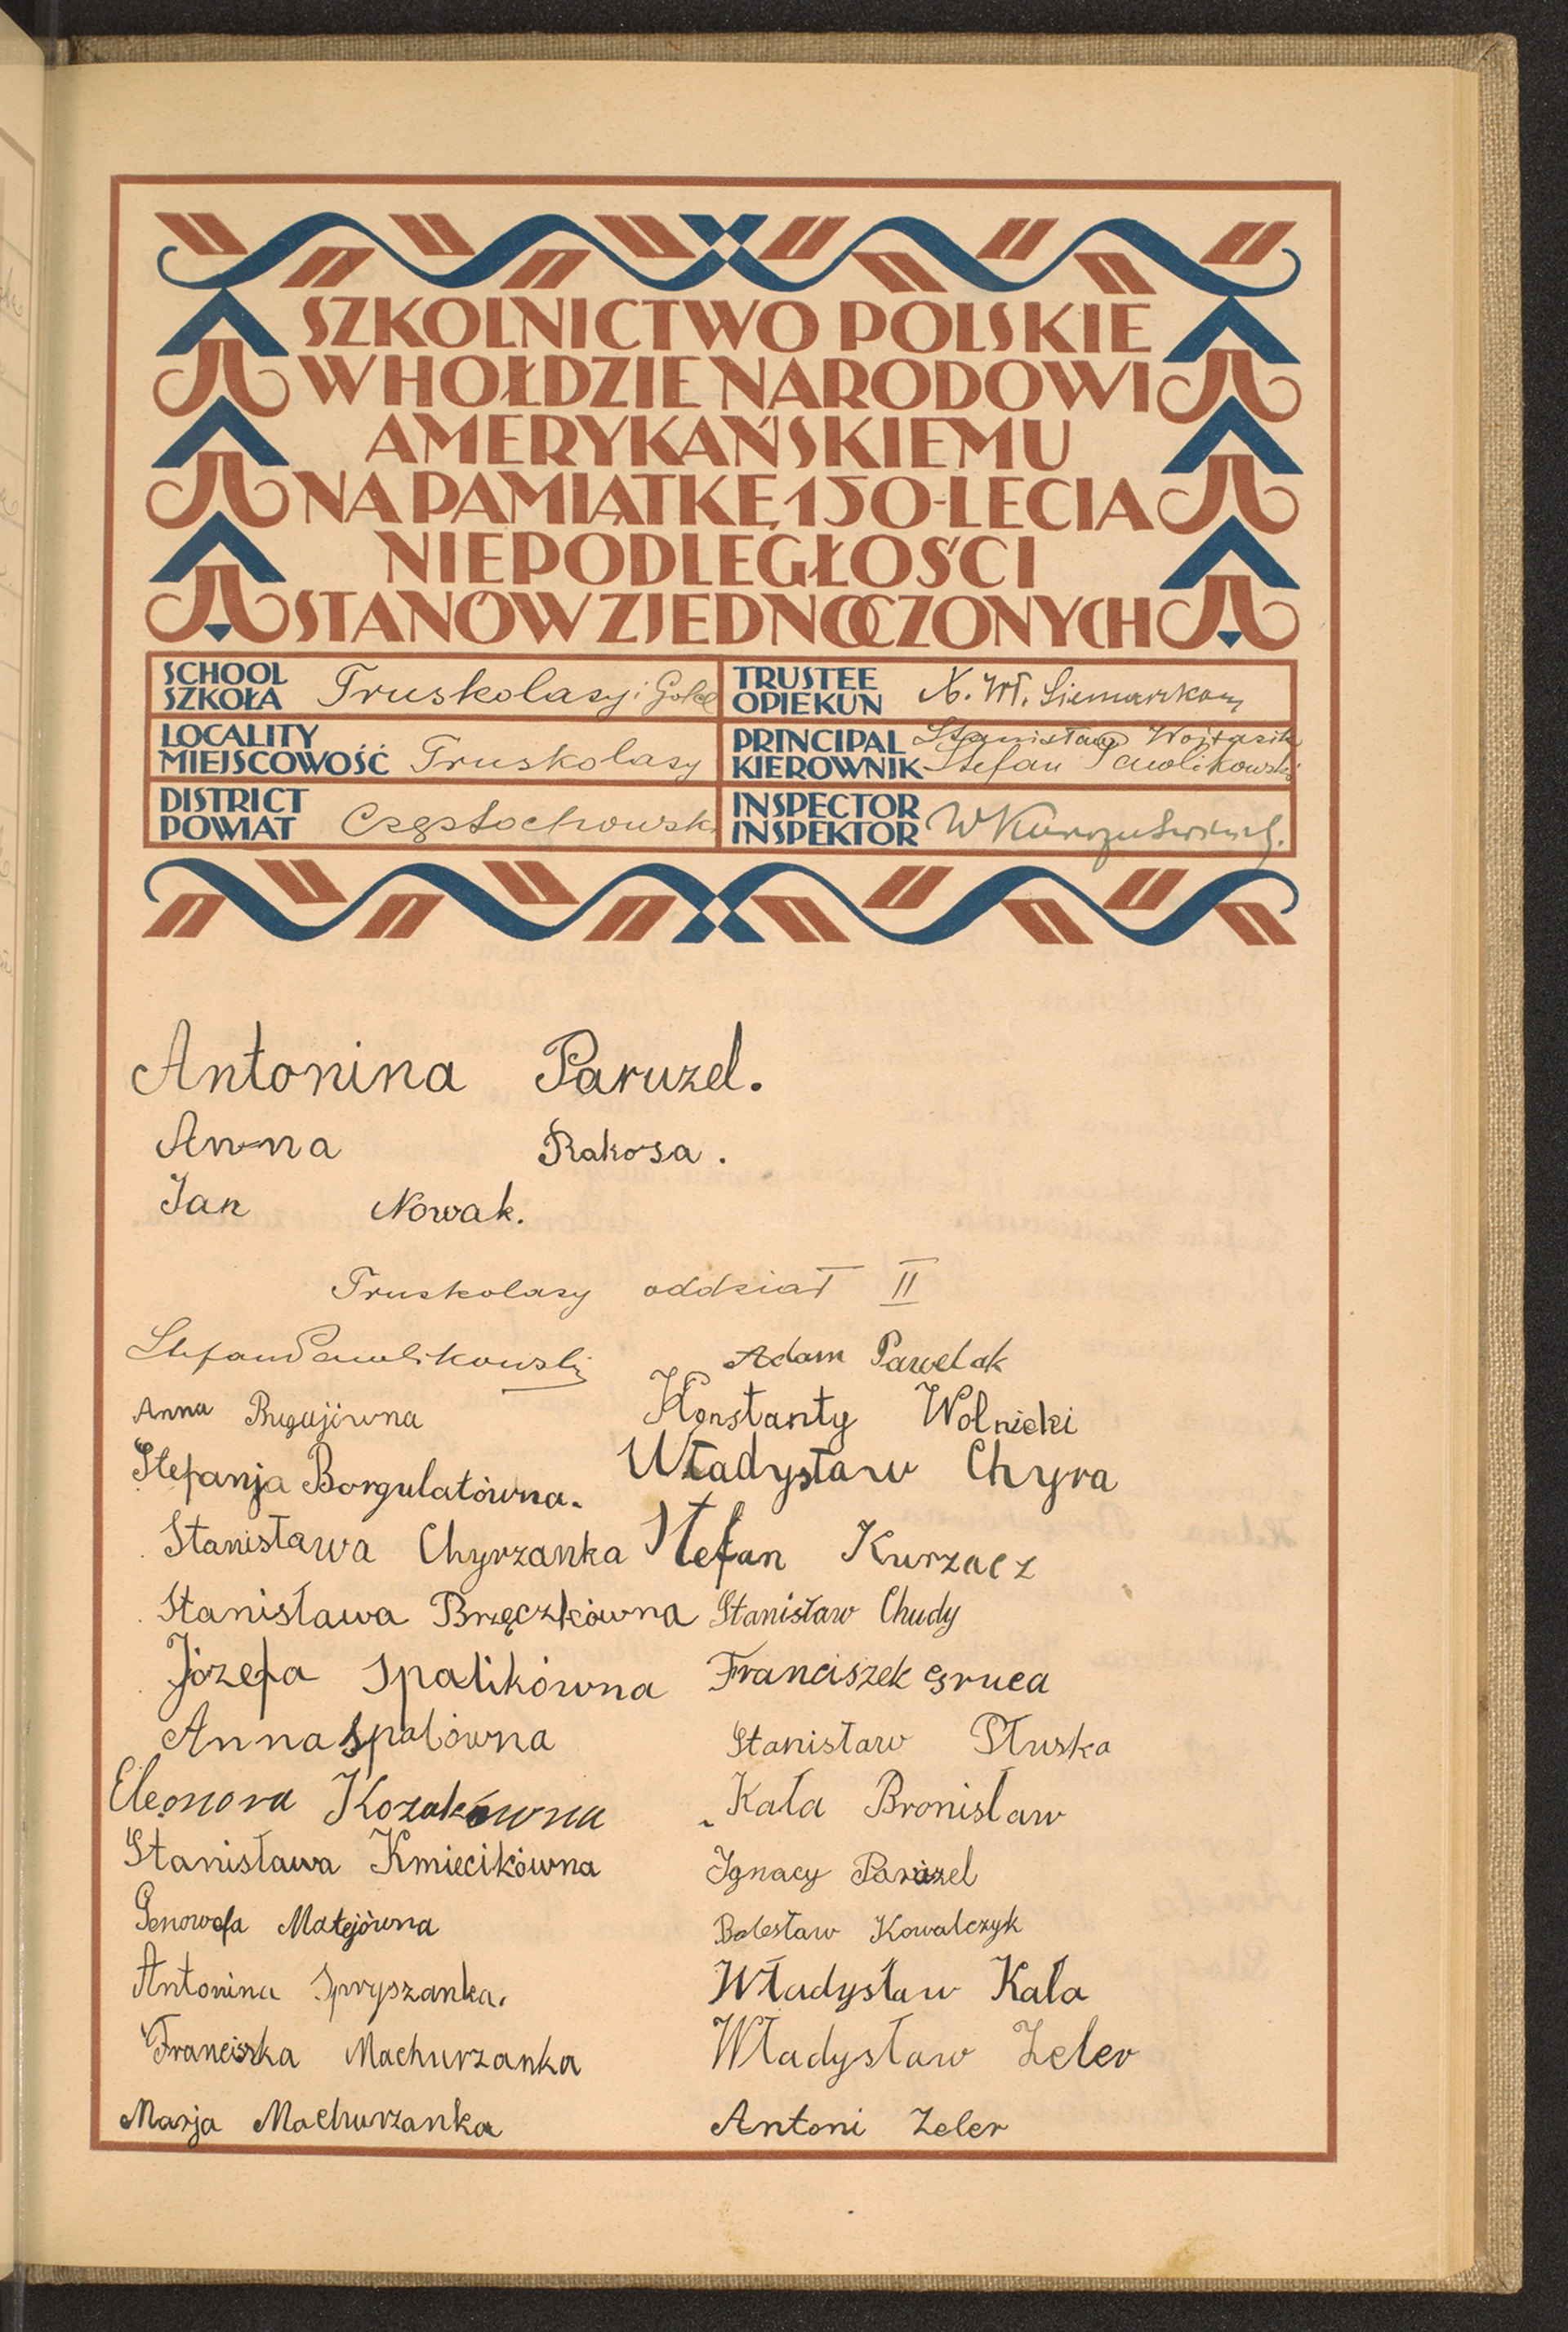 SZKOLNICTWO POLSKIE
W HOŁDZIE NARODOWI
AMERYKAŃSKIEMU
NA PAMIĄTKĘ 150-LECIA
NIEPODLEGŁOŚCI
STANÓW ZJEDNOCZONYCH
SCHOOL
SZKOŁA Truskolasy i
TRUSTEE
OPIEKUN X. Wł.
LOCALITY
MIEJSCOWOŚĆ Truskolasy
PRINCIPAL Stanisław Wojtasik
KIEROWNIK Stefan Pawlikowski
DISTRICT
POWIAT Częstochowski
INSPECTOR
INSPEKTOR
Antonina Paruzel.
Anna Rakosa.
Jan Nowak.
Truskolasy oddział II
Stefan Pawlikowski
Anna Bugajówna
Stefanja Borgulatówna.
Stanisława Chyrzanka
Stanisława Brzęczkówna
Józefa Spalikówna
Anna Spalówna
Eleonora Kozakówna
Stanisława Kmiecikówna
Genowefa Matejówna
Antonina Spryszanka.
Franciszka Machurzanka
Marja Machurzanka
Adam Pawelak
Konstanty Wolnicki
Władysław Chyra
Stefan Kurzacz
Stanisław Chudy
Franciszek Gruca
Stanisław Płuska
Kała Bronisław
Ignacy Paruzel
Bolesław Kowalczyk
Władysław Kala
Władysław Zeler
Antoni Zeler